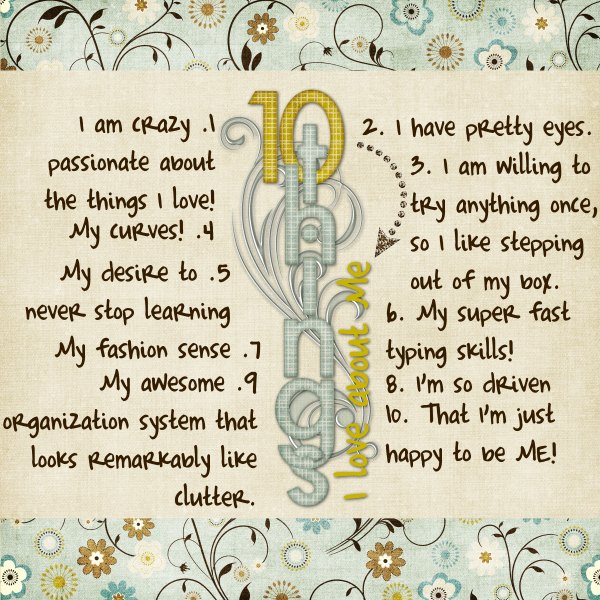 10
things
I love about Me
I am crazy .1
passionate about
the things I love!
2. I have pretty eyes.
3. I am willing to
try anything once,
so I like stepping
out of my box.
My curves! .4
My desire to .5
never stop learning
6. My super fast
typing skills!
My fashion sense .7
8. I'm so driven
My awesome .9
organization system that
looks remarkably like
clutter.
10. That I'm just
happy to be ME!